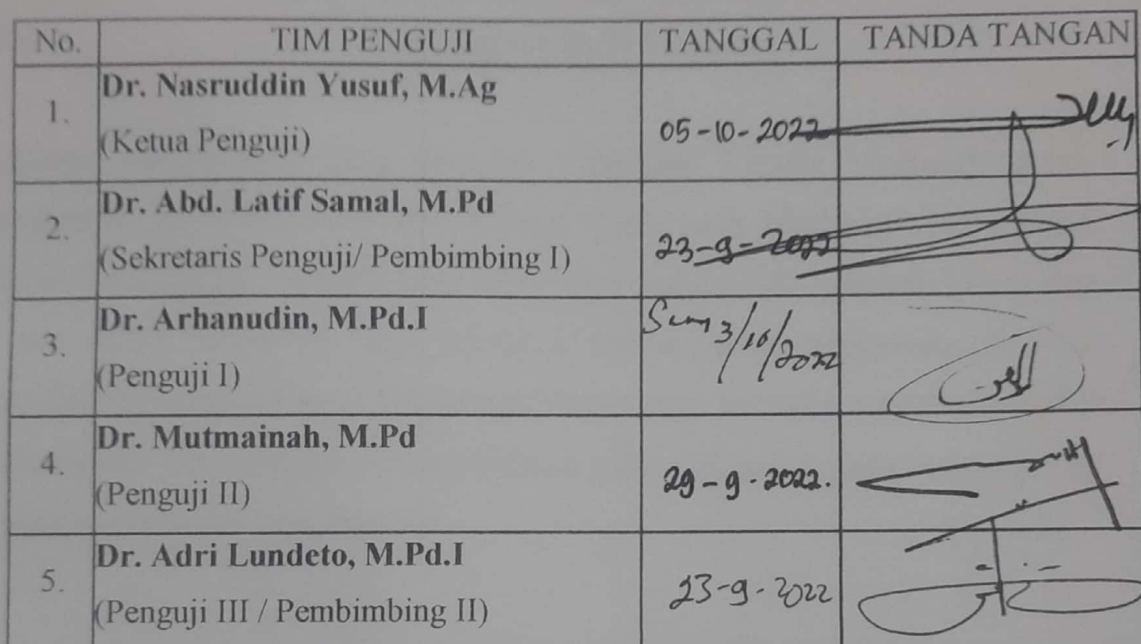 No. TIM PENGUJI TANGGAL TANDA TANGAN
1. Dr. Nasruddin Yusuf, M.Ag
(Ketua Penguji) 05-10-2022
2. Dr. Abd. Latif Samal, M.Pd
(Sekretaris Penguji/ Pembimbing I) 23-9-2022
3. Dr. Arhanudin, M.Pd.I
(Penguji I) 3/10/2022
4. Dr. Mutmainah, M.Pd
(Penguji II) 29-9-2022.
5. Dr. Adri Lundeto, M.Pd.I
(Penguji III / Pembimbing II) 23-9-2022